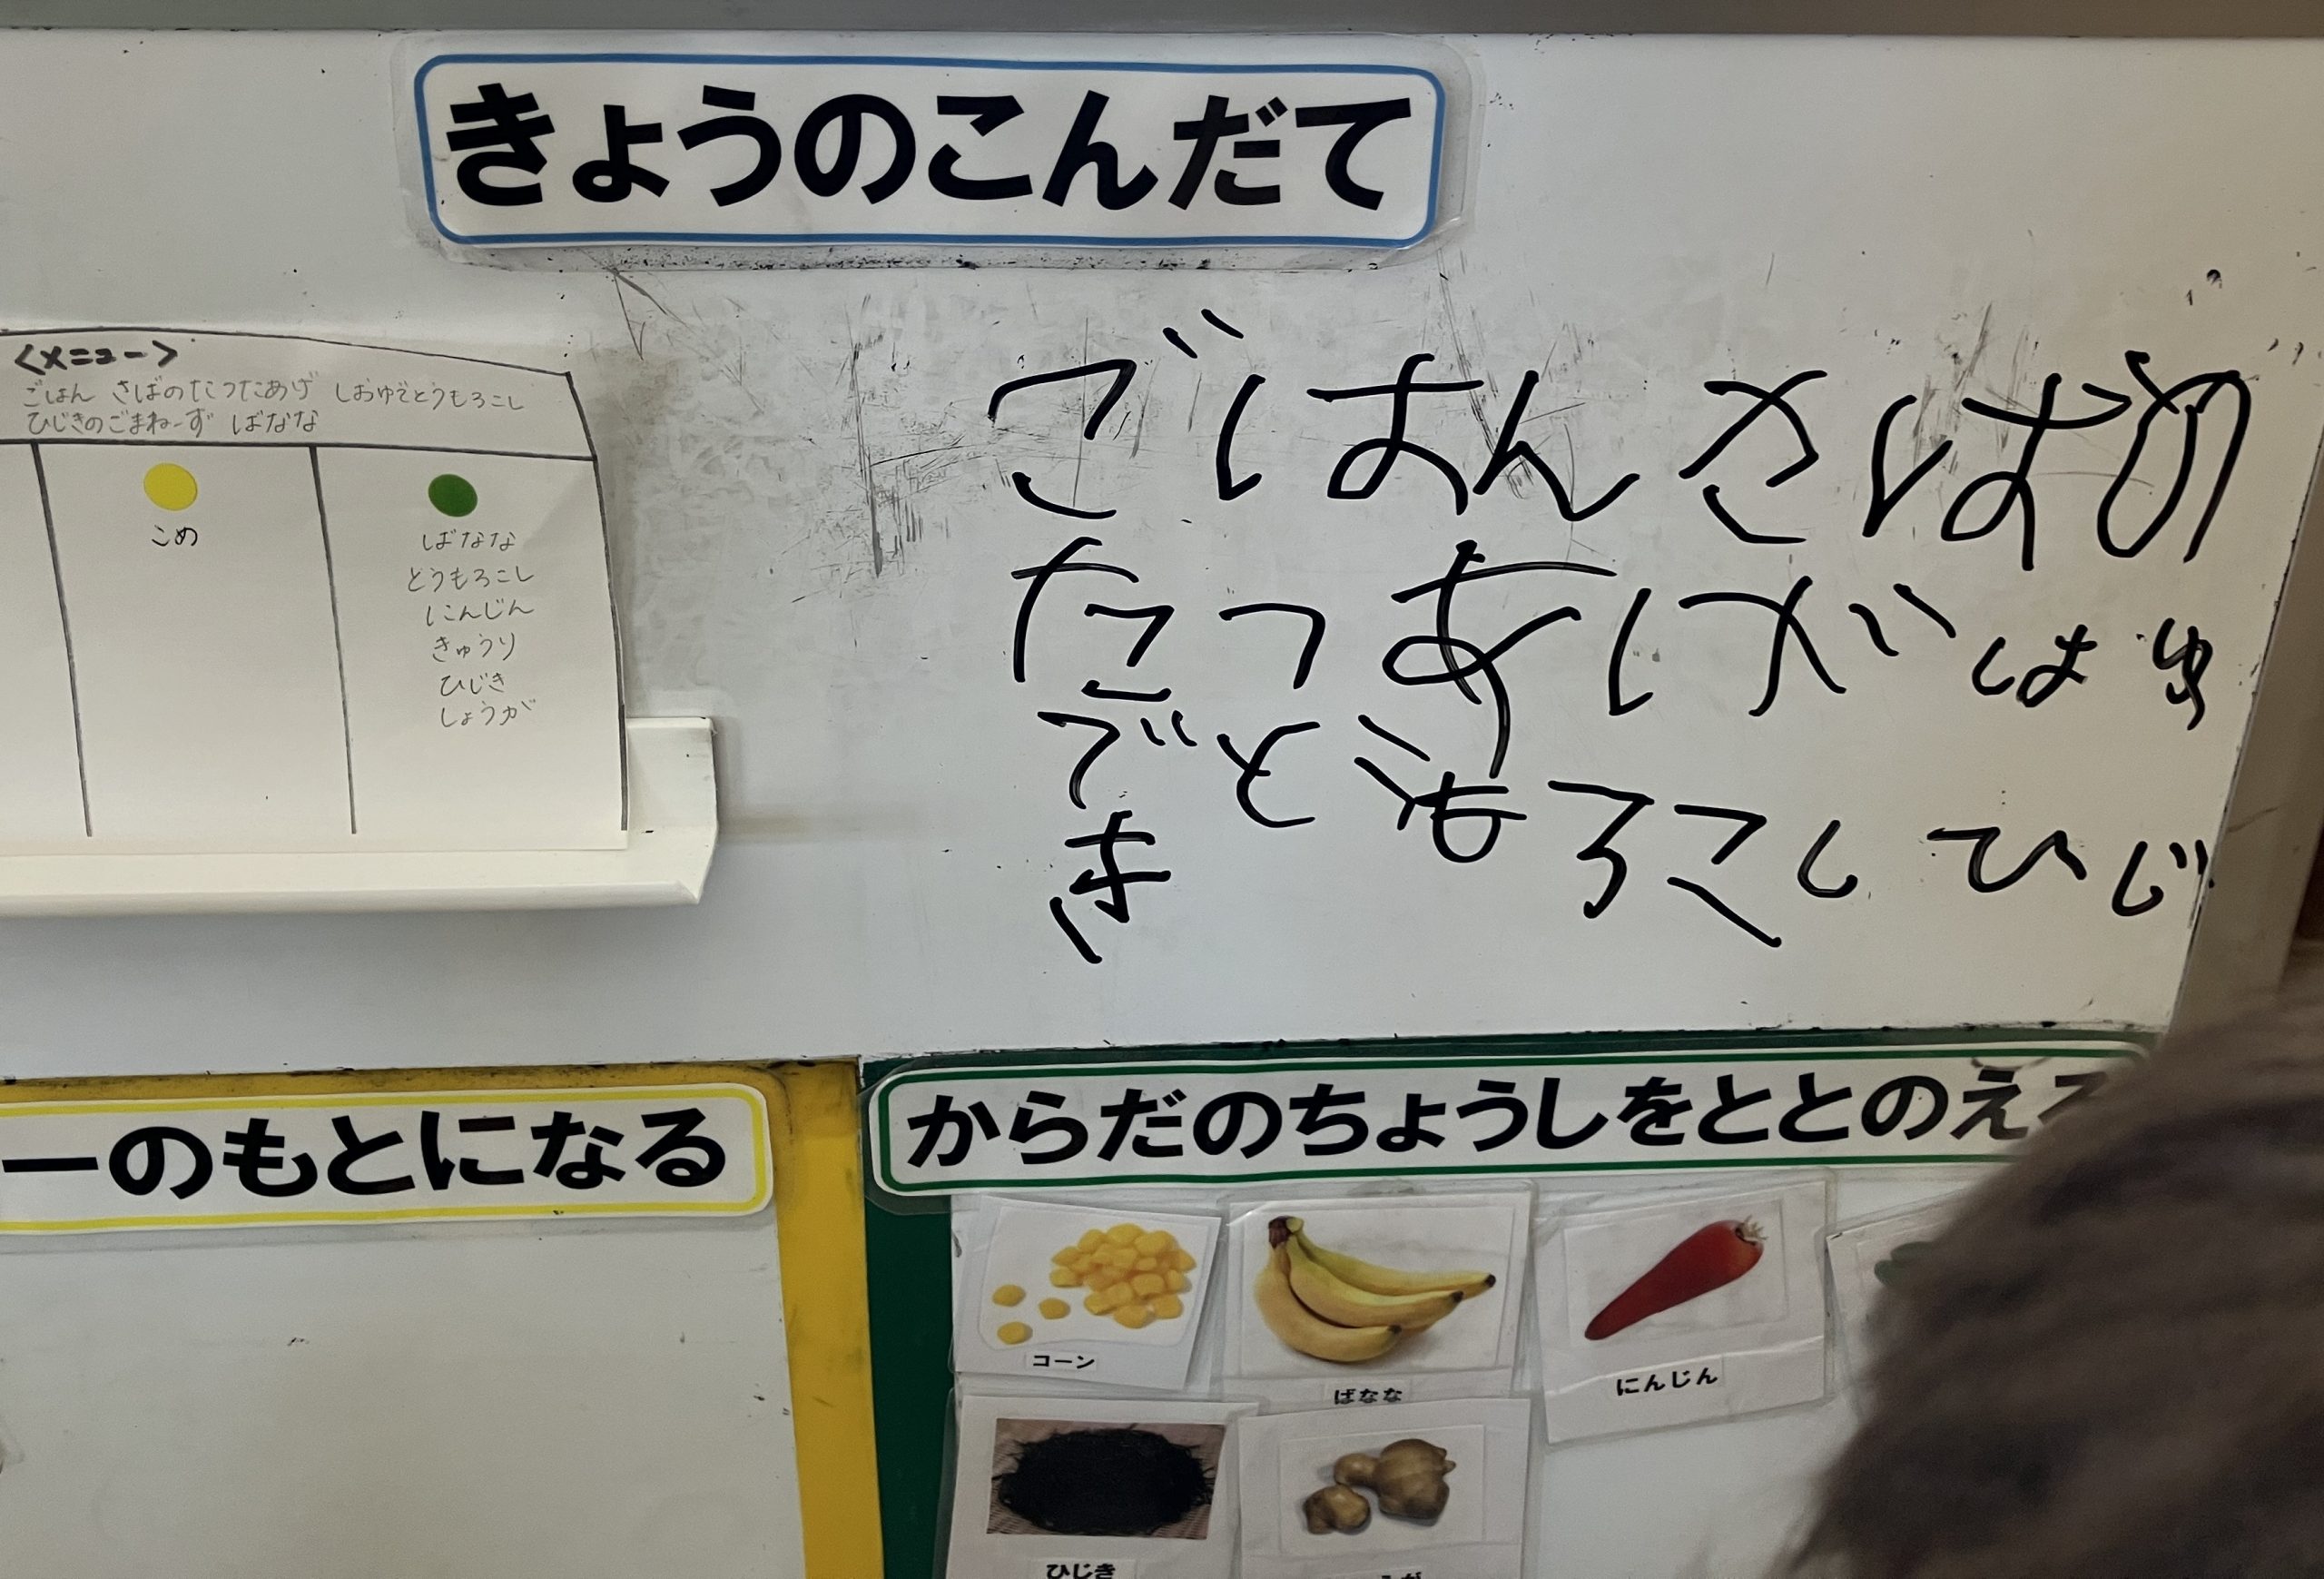 きょうのこんだて
<メニュー>
ごはん さばのたつたあげ しおゆでとうもろこし
ひじきのごまねーず ばなな
こめ
ばなな
とうもろこし
にんじん
きゅうり
ひじき
しょうが
ごはん さばの
たつあげ しお ゆ
でとうもろこし ひじ
き
ーのもとになる
からだのちょうしをととのえ
コーン
ばなな
にんじん
ひじき